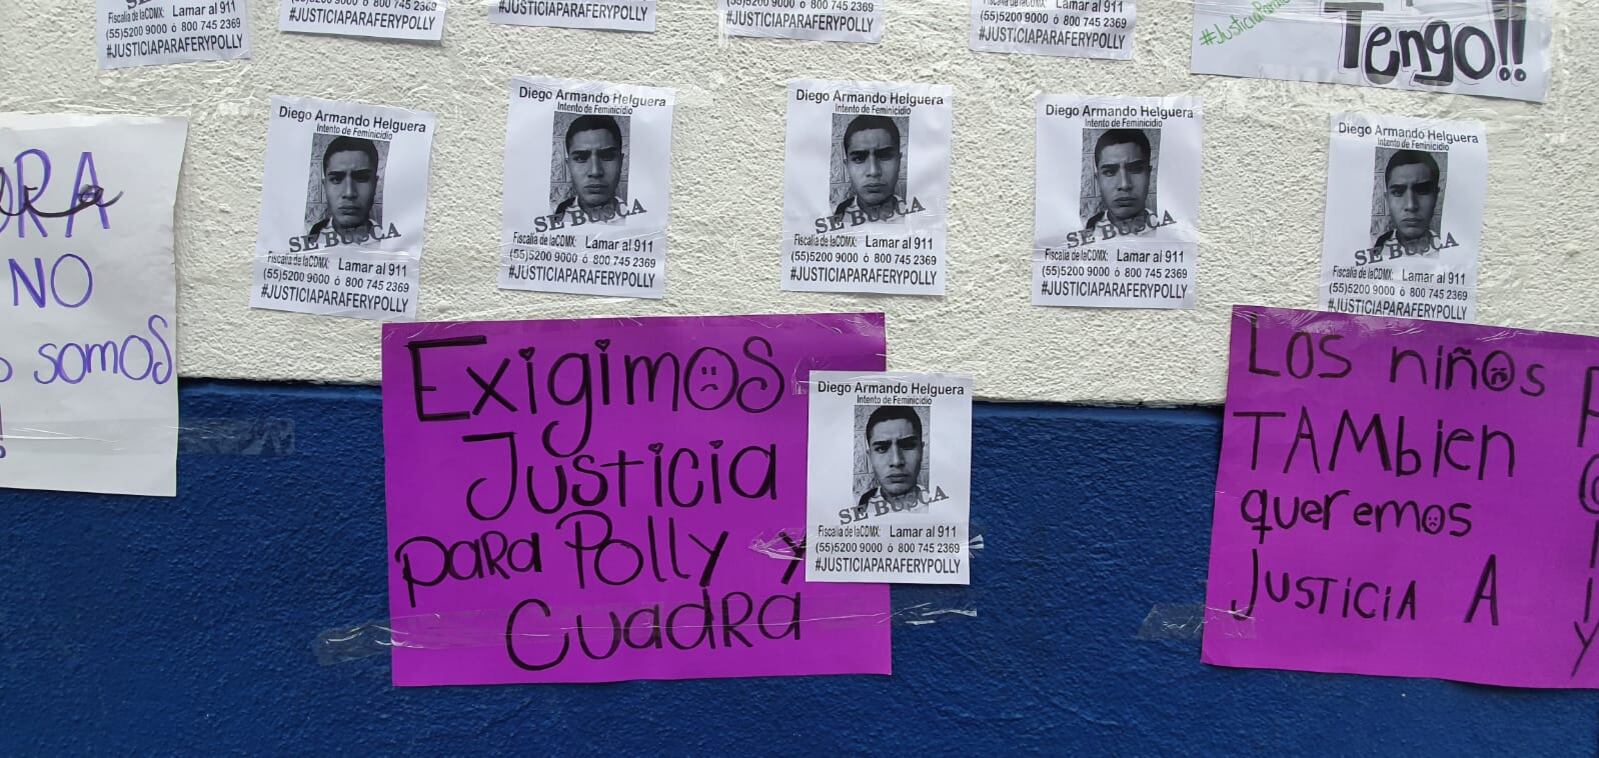 Lamar al 911
(55)5200 9000 ó 800 745 2369
#JUSTICIAPARAFERYPOLLY
(55)5200 9000 ó 800 745 2369
#JUSTICIAPARAFERYPOLLY
#JUSTICIAPARAFERYPOLLY
(55)5200 9000 ó 800 745 2369
#JUSTICIAPARAFERYPOLLY
Fiscalia de laCDMX: Lamar al 911
(55)5200 9000 ó 800 745 2369
#JUSTICIAPARAFERYPOLLY
Tengo!!
NO
somos
Diego Armando Helguera
Intento de Feminicidio
SE BUSCA
Fiscalia de laCDMX: Lamar al 911
(55)5200 9000 ó 800 745 2369
#JUSTICIAPARAFERYPOLLY
Diego Armando Helguera
Intento de Feminicidio
SE BUSCA
Fiscalia de laCDMX: Lamar al 911
(55)5200 9000 ó 800 745 2369
#JUSTICIAPARAFERYPOLLY
Diego Armando Helguera
Intento de Feminicidio
SE BUSCA
Fiscalia de laCDMX: Lamar al 911
(55)5200 9000 ó 800 745 2369
#JUSTICIAPARAFERYPOLLY
Diego Armando Helguera
Intento de Feminicidio
SE BUSCA
Fiscalia de laCDMX: Lamar al 911
(55)5200 9000 ó 800 745 2369
#JUSTICIAPARAFERYPOLLY
Diego Armando Helguera
Intento de Feminicidio
SE BUSCA
Fiscalia de laCDMX: Lamar al 911
(55)5200 9000 ó 800 745 2369
#JUSTICIAPARAFERYPOLLY
Exigimos
Justicia
para Polly y
Cuadra
Diego Armando Helguera
Intento de Feminicidio
SE BUSCA
Fiscalia de laCDMX: Lamar al 911
(55)5200 9000 ó 800 745 2369
#JUSTICIAPARAFERYPOLLY
Los niños
TAMbien
queremos
Justicia A